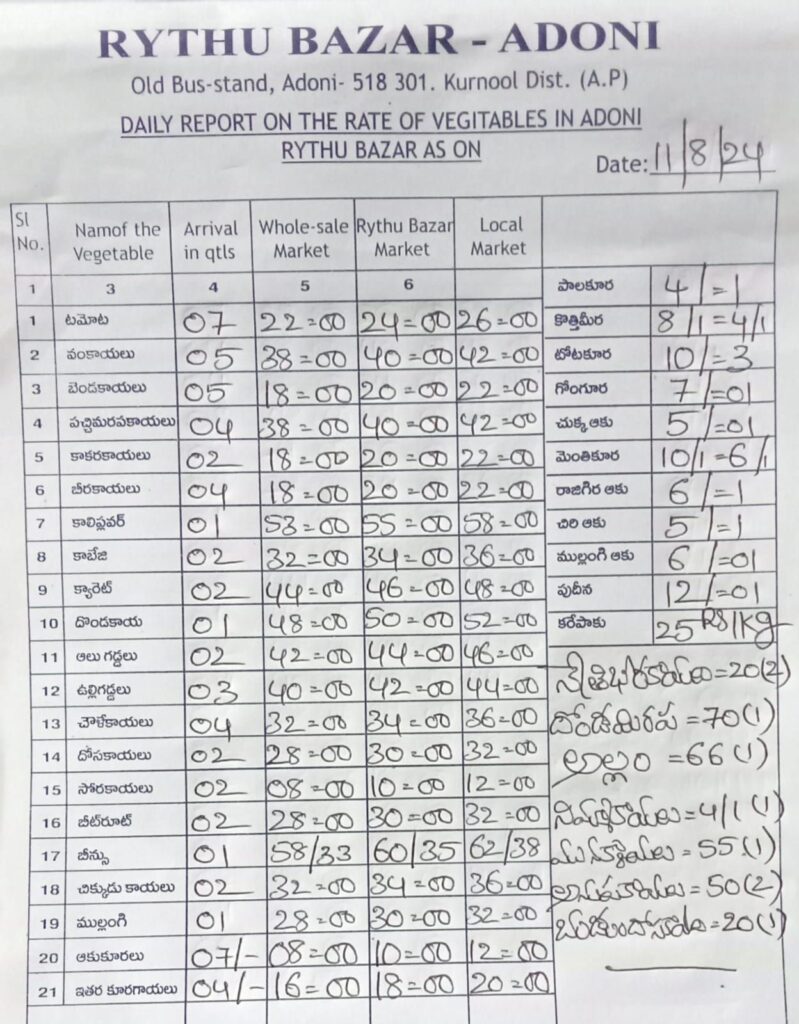 RYTHU BAZAR - ADONI
Old Bus-stand, Adoni- 518 301. Kurnool Dist. (A.P)
DAILY REPORT ON THE RATE OF VEGITABLES IN ADONI
RYTHU BAZAR AS ON
Date: 11/8/24
Sl No. Namof the Vegetable Arrival in qtls Whole-sale Market Rythu Bazar Market Local Market
1 3 4 5 6 పాలకూర 4/=1
1 టమోట 07 22=00 24=00 26=00 కొత్తిమీర 8/1=4/1
2 వంకాయలు 05 38=00 40=00 42=00 టోటకూర 10/=3
3 బెండకాయలు 05 18=00 20=00 22=00 గోంగూర 7/=01
4 పచ్చిమరపకాయలు 04 38=00 40=00 42=00 చుక్క ఆకు 5/=01
5 కాకరకాయలు 02 18=00 20=00 22=00 మెంతికూర 10/1=6/1
6 బీరకాయలు 04 18=00 20=00 22=00 రాజగిర ఆకు 6/=1
7 కాలిఫ్లవర్ 01 53=00 55=00 58=00 చిరి ఆకు 5/=1
8 కాబేజి 02 32=00 34=00 36=00 ముల్లంగి ఆకు 6/=01
9 క్యారెట్ 02 44=00 46=00 48=00 పుదీన 12/=01
10 దొండకాయ 01 48=00 50=00 52=00 కరేపాకు 25 RS/Kg
11 ఆలు గడ్డలు 02 42=00 44=00 46=00
12 ఉల్లిగడ్డలు 03 40=00 42=00 44=00 =20(2)
13 చౌళేకాయలు 04 32=00 34=00 36=00 =70(1)
14 దోసకాయలు 02 28=00 30=00 32=00 అల్లం =66(1)
15 సోరకాయలు 02 08=00 10=00 12=00
16 బీట్‌రూట్ 02 28=00 30=00 32=00 =4/1(1)
17 బీన్సు 01 58/33 60/35 62/38 =55(1)
18 చిక్కుడు కాయలు 02 32=00 34=00 36=00 =50(2)
19 ముల్లంగి 01 28=00 30=00 32=00 =20(1)
20 ఆకుకూరలు 07/- 08=00 10=00 12=00
21 ఇతర కూరగాయలు 04/- 16=00 18=00 20=00